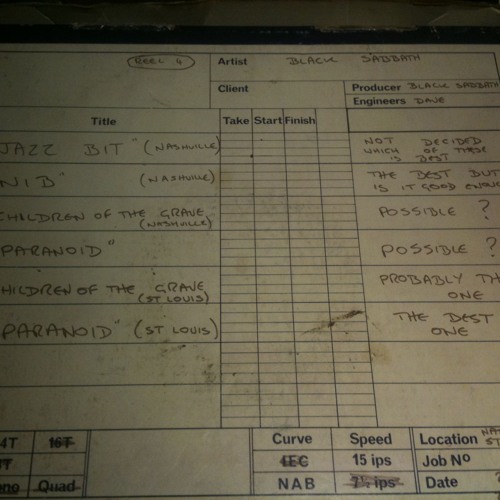 REEL 4
Artist BLACK SABBATH
Client
Producer BLACK SABBATH
Engineers DAVE
Title Take Start Finish
JAZZ BIT" (NASHVILLE) NOT DECIDED
WHICH OF THESE
IS BEST
NIB" (NASHVILLE) THE BEST BUT
IS IT GOOD
CHILDREN OF THE GRAVE POSSIBLE ?
(NASHVILLE)
PARANOID" POSSIBLE ?
HILDREN OF THE GRAVE PROBABLY TH
(ST LOUIS) ONE
PARANOID" (ST LOUIS) THE BEST
ONE
4T 16T Curve Speed Location
IEC 15 ips Job No
no Quad NAB 7½ ips Date